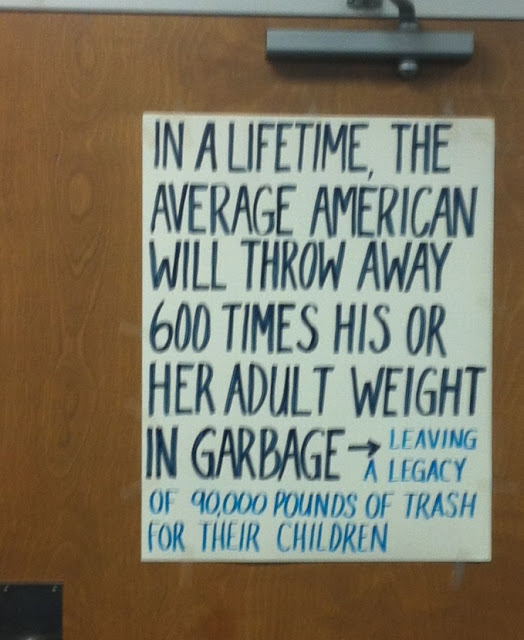 IN A LIFETIME, THE
AVERAGE AMERICAN
WILL THROW AWAY
600 TIMES HIS OR
HER ADULT WEIGHT
IN GARBAGE → LEAVING
A LEGACY
OF 90,000 POUNDS OF TRASH
FOR THEIR CHILDREN